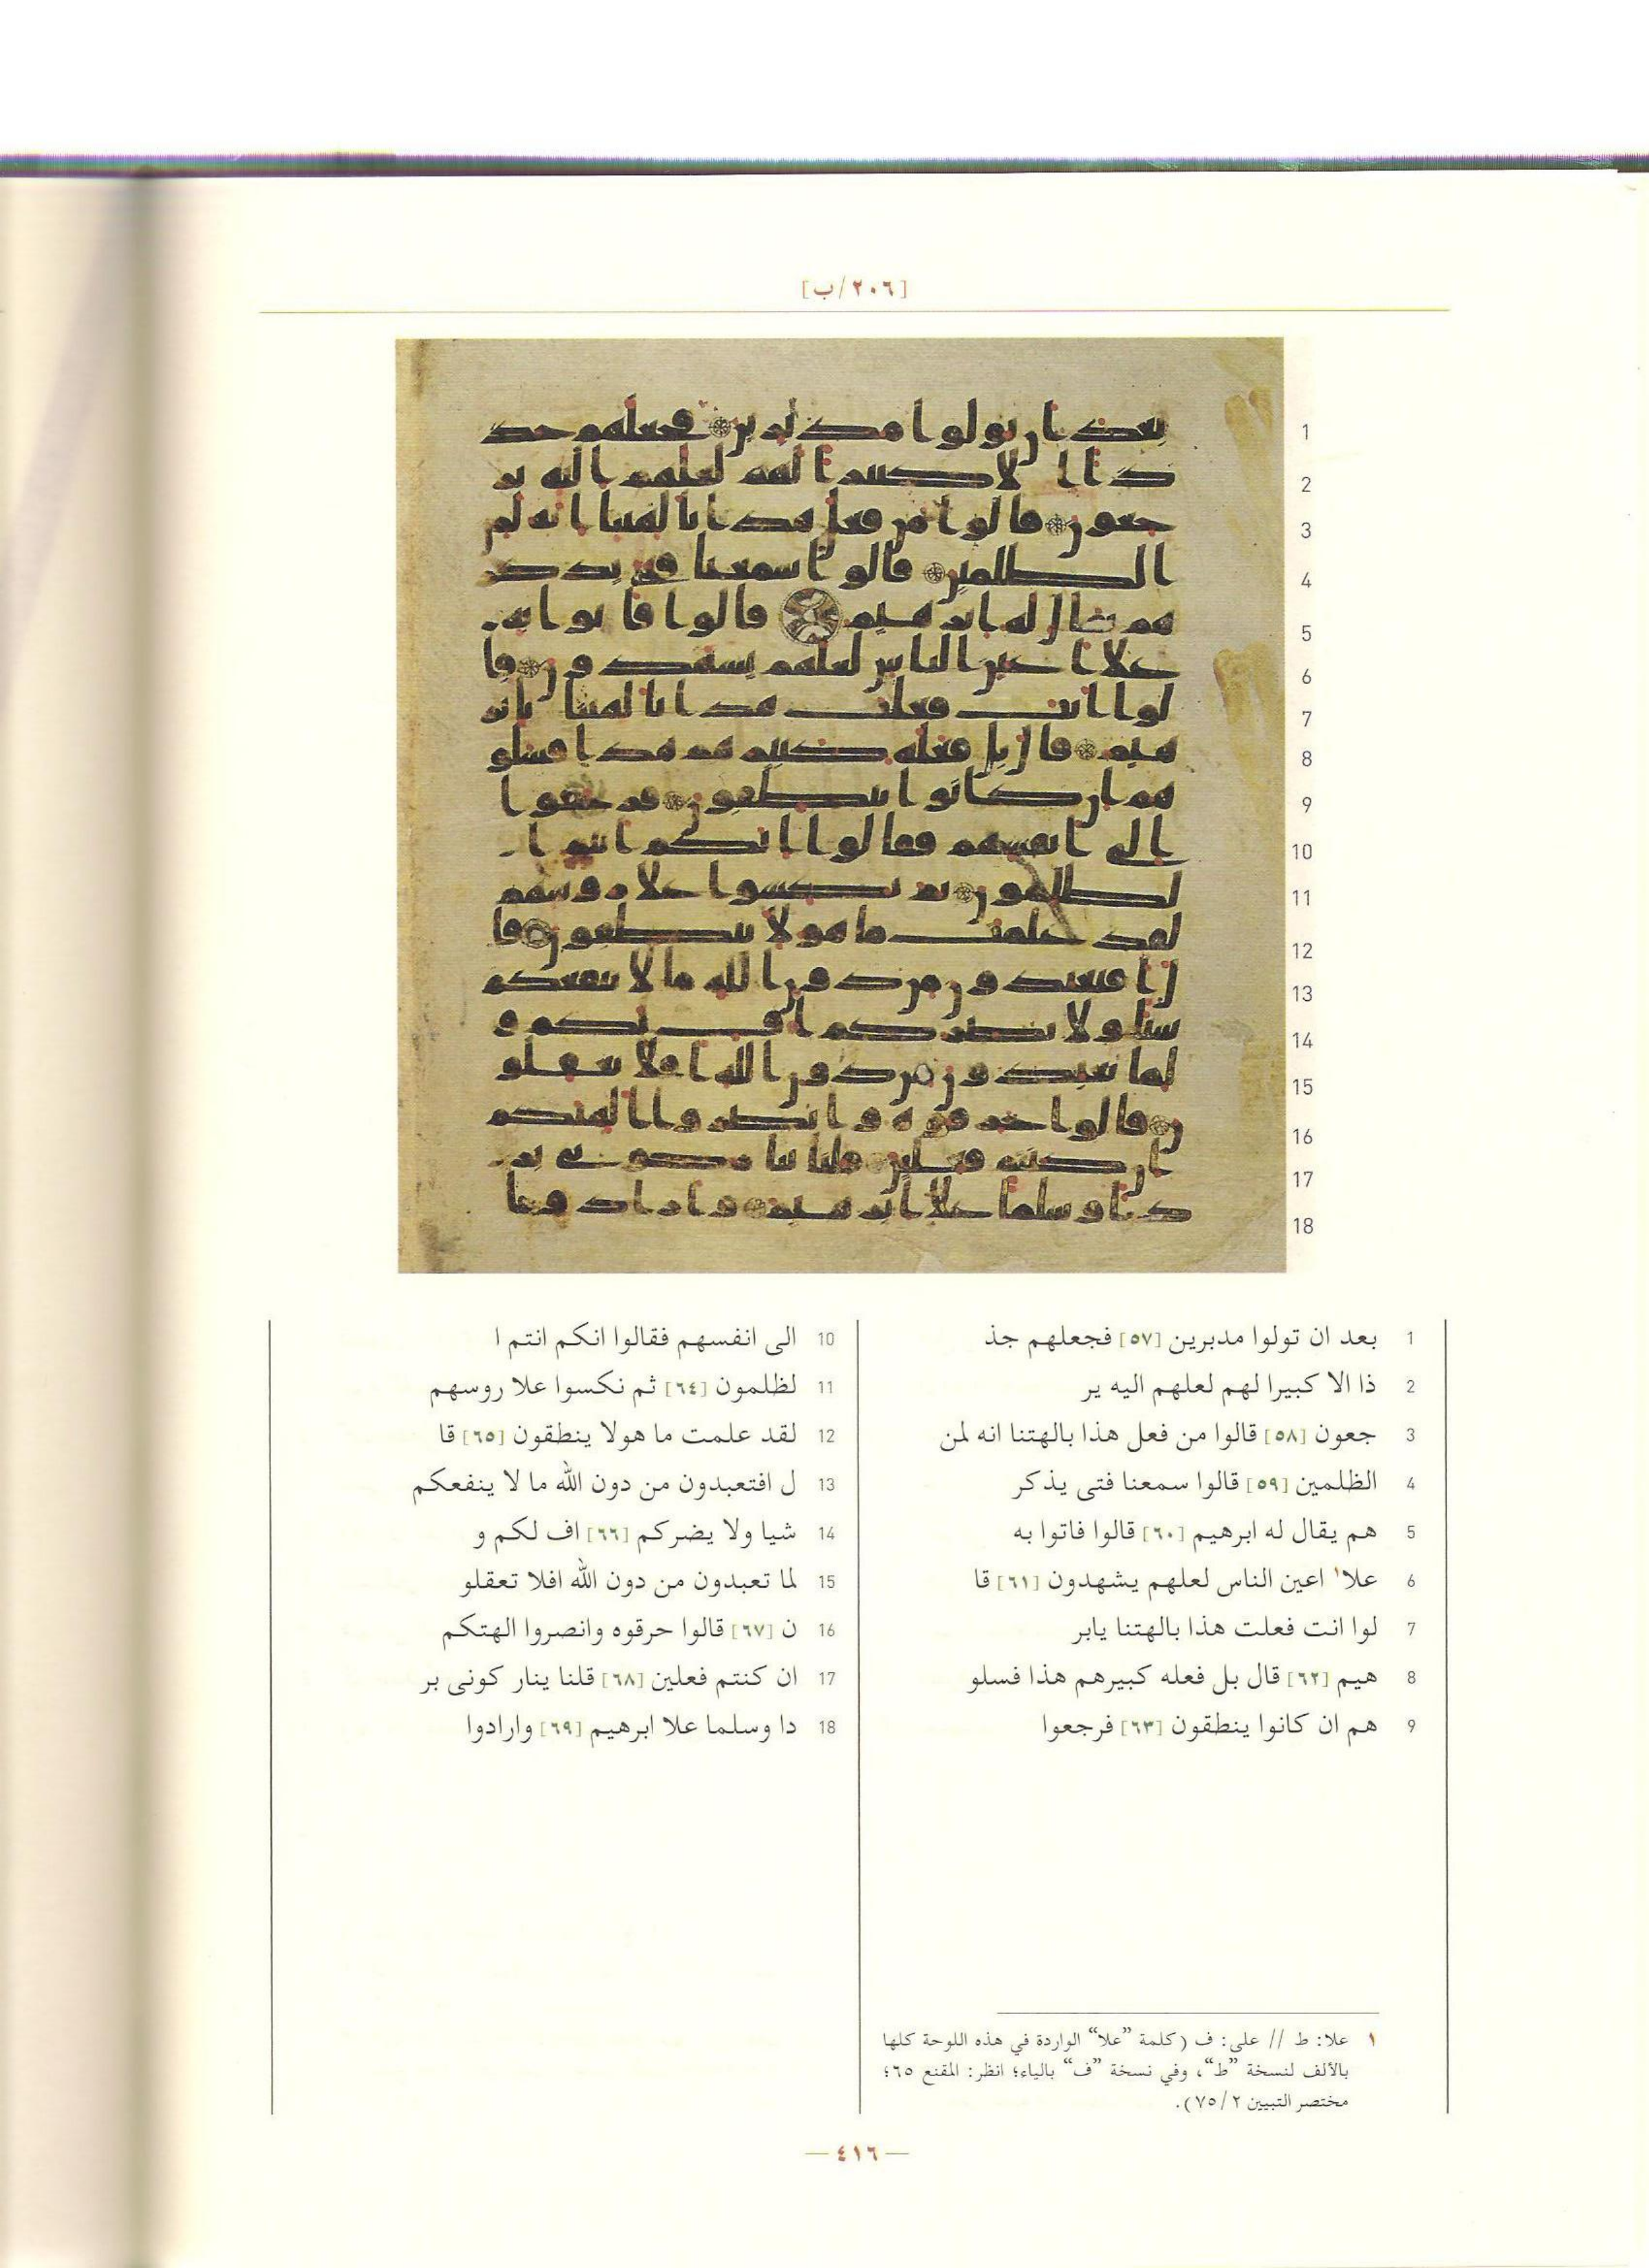 [٢٠٦/ب]
1
2
3
4
5
6
7
8
9
10
11
12
13
14
15
16
17
18
1 بعد ان تولوا مدبرين [٥٧] فجعلهم جذ
2 ذا الا كبيرا لهم لعلهم اليه ير
3 جعون [٥٨] قالوا من فعل هذا بالهتنا انه لمن
4 الظلمين [٥٩] قالوا سمعنا فتى يذكر
5 هم يقال له ابرهيم [٦٠] قالوا فاتوا به
6 علا١ اعين الناس لعلهم يشهدون [٦١] قا
7 لوا انت فعلت هذا بالهتنا يابر
8 هيم [٦٢] قال بل فعله كبيرهم هذا فسلو
9 هم ان كانوا ينطقون [٦٣] فرجعوا
10 الى انفسهم فقالوا انكم انتم ا
11 لظلمون [٦٤] ثم نكسوا علا روسهم
12 لقد علمت ما هولا ينطقون [٦٥] قا
13 ل افتعبدون من دون الله ما لا ينفعكم
14 شيا ولا يضركم [٦٦] اف لكم و
15 لما تعبدون من دون الله افلا تعقلو
16 ن [٦٧] قالوا حرقوه وانصروا الهتكم
17 ان كنتم فعلين [٦٨] قلنا ينار كونى بر
18 دا وسلما علا ابرهيم [٦٩] وارادوا
١ علا: ط // على: ف (كلمة ”علا“ الواردة في هذه اللوحة كلها
بالألف لنسخة ”ط“، وفي نسخة ”ف“ بالياء؛ انظر: المقنع ٦٥؛
مختصر التبيين ٢/ ٧٥).
— ٤١٦ —